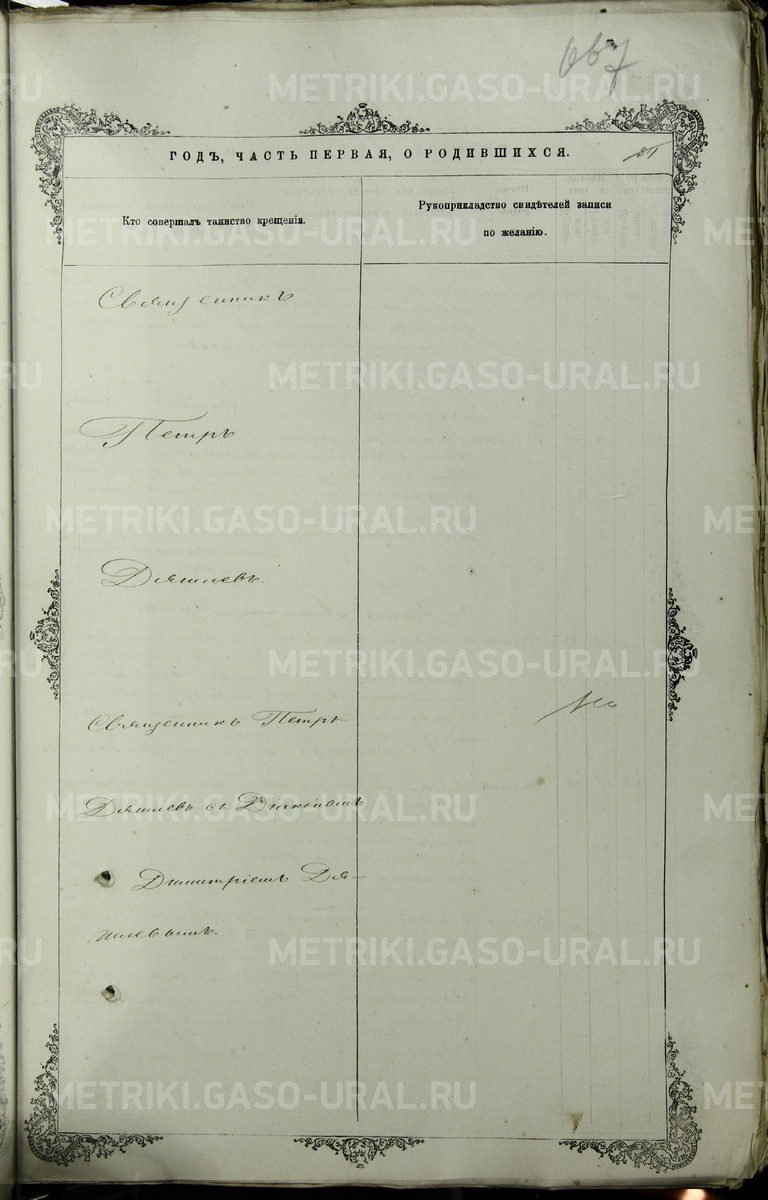 667
ГОДЪ, ЧАСТЬ ПЕРВАЯ, О РОДИВШИХСЯ.
Кто совершалъ таинство крещенія.
Рукоприкладство свидѣтелей записи
по желанію.
Священникъ
Петръ
Дягилевъ.
Священникъ Петръ
Дягилевъ съ Діакономъ
Димитріемъ Дя-
гилевымъ.
METRIKI.GASO-URAL.RU